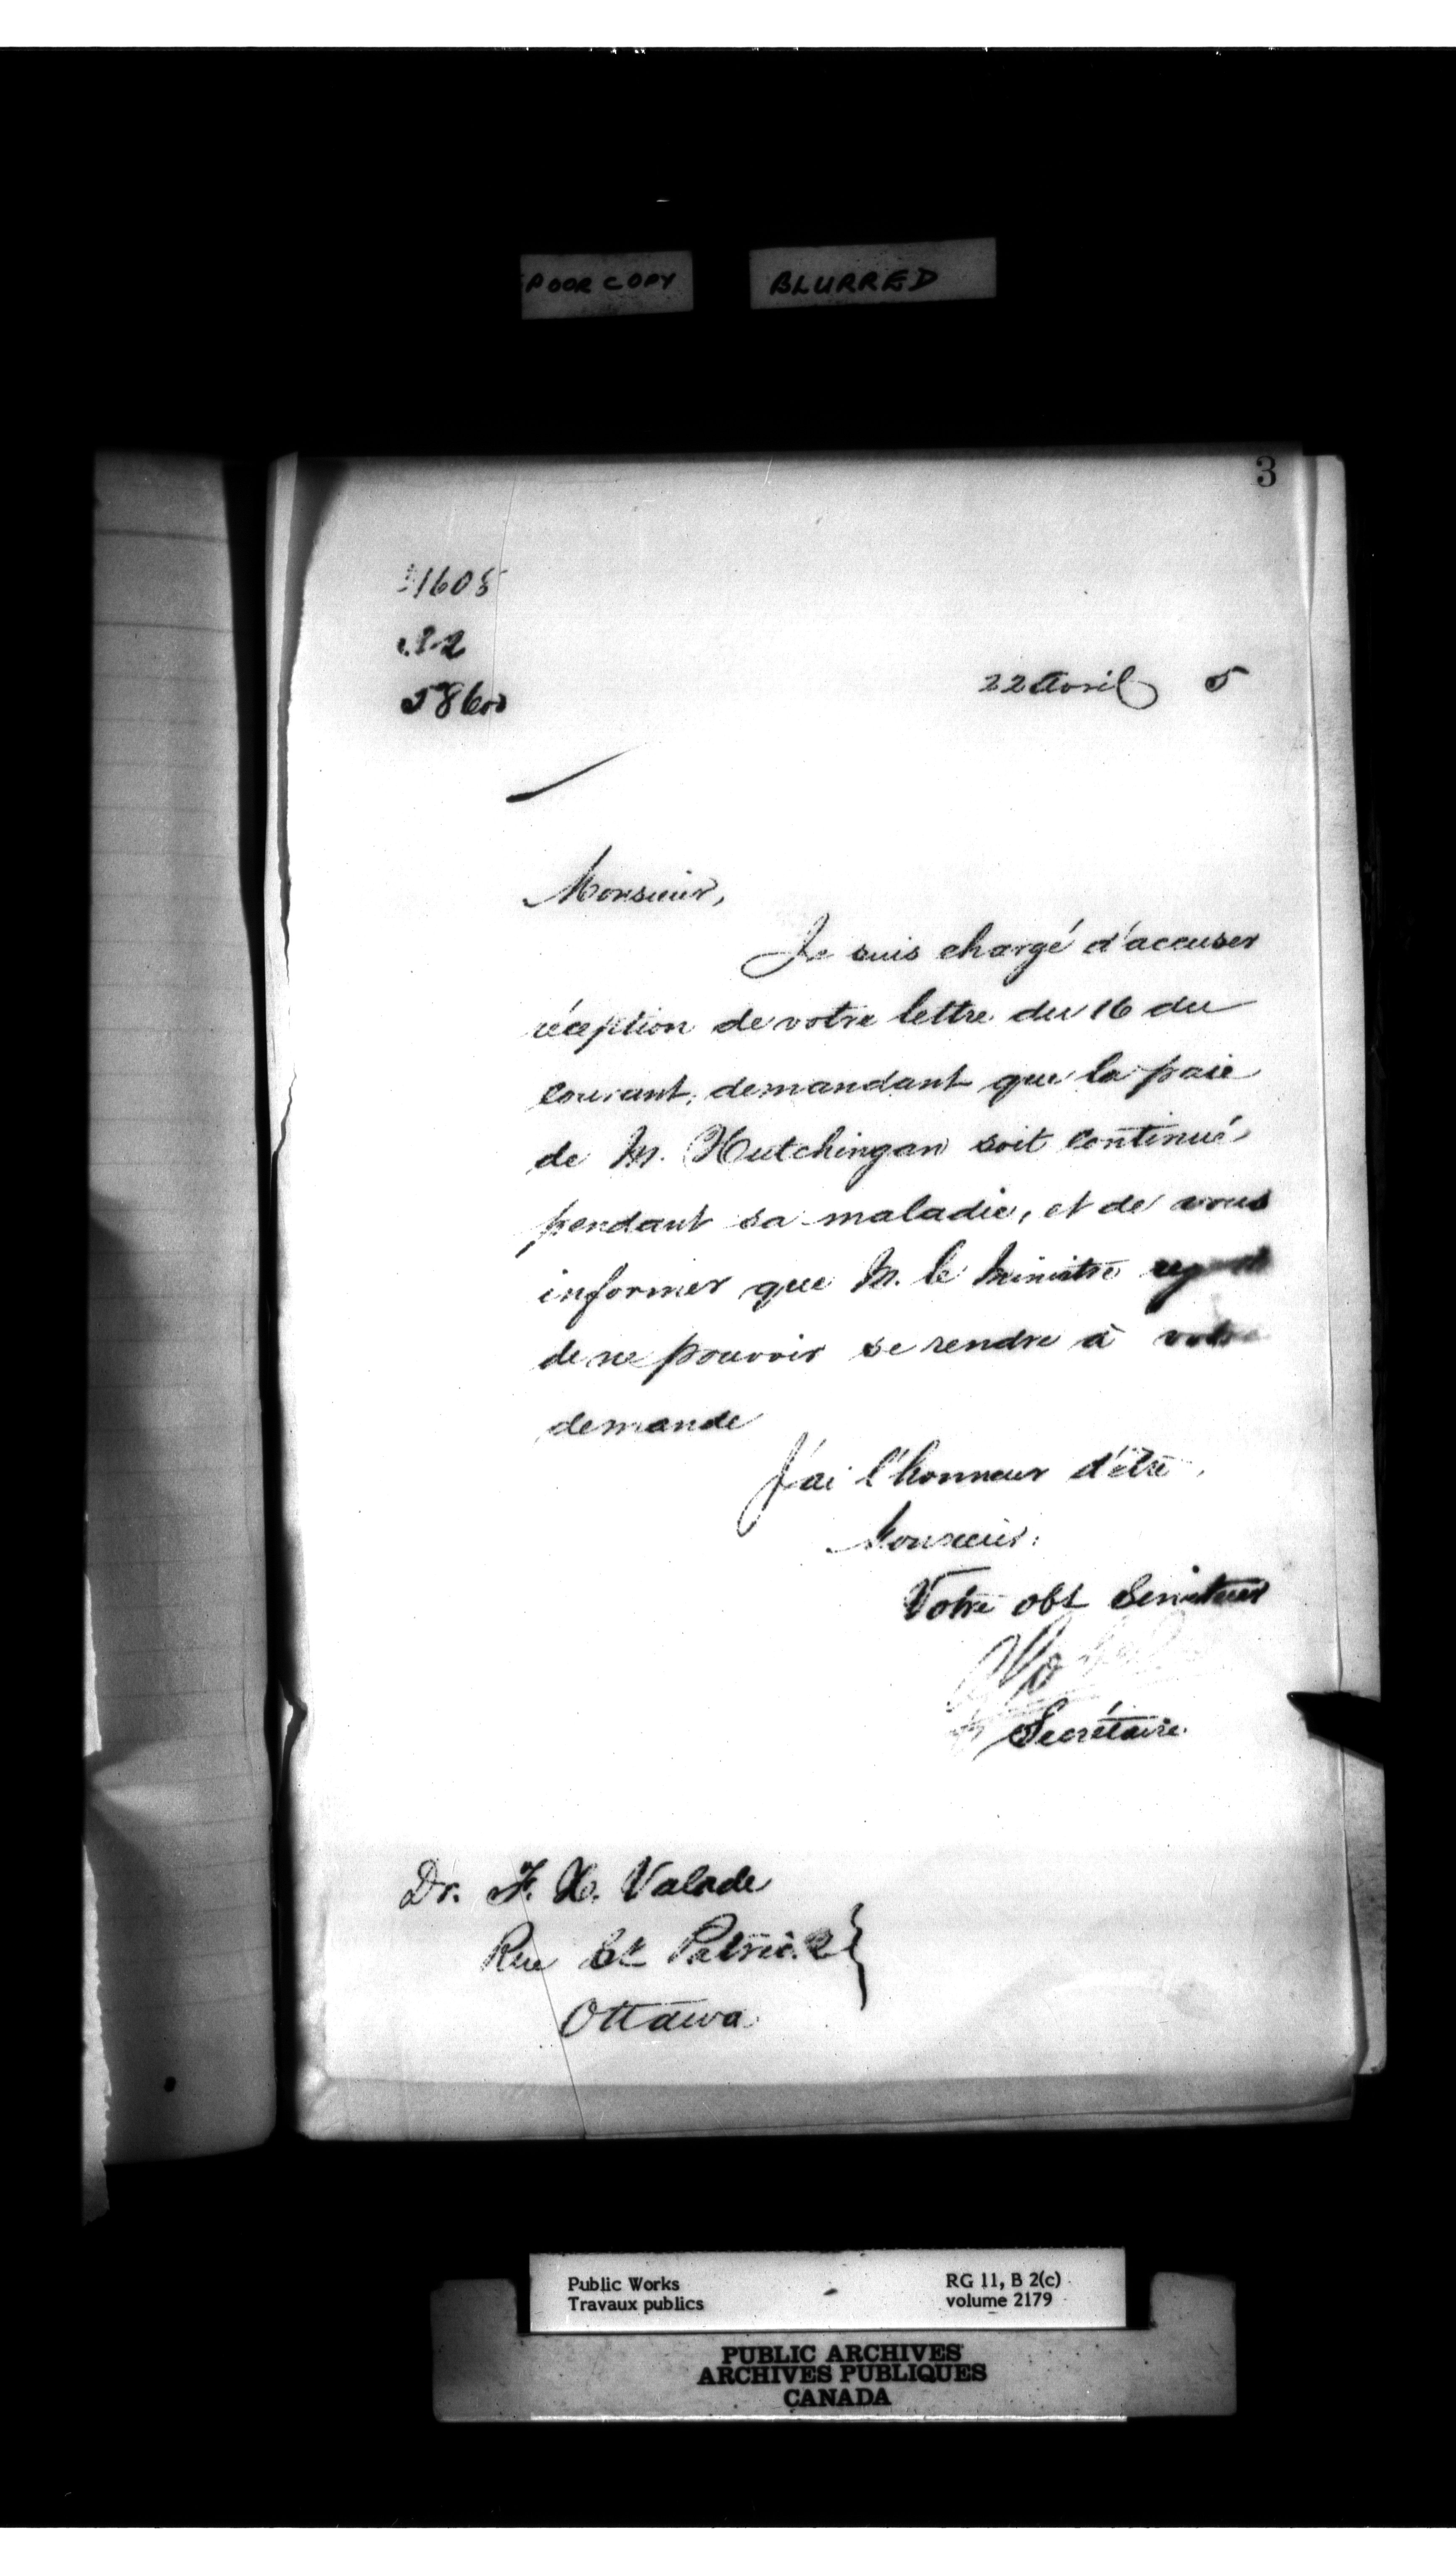 POOR COPY
BLURRED
3
1605
22 Avril 5
Monsieur,
Je suis chargé d'accuser
réception de votre lettre du 16 du
courant, demandant que la paie
de M. Hutchingan soit continué
pendant sa maladie, et de vous
informer que M. le Ministre
de ne pouvoir se rendre à votre
demande
J'ai l'honneur d'être,
Monsieur,
Votre obt Serviteur
Secrétaire.
Dr. F. X. Valade
Rue St Patrick
Ottawa
Public Works
Travaux publics
RG 11, B 2(c)
volume 2179
PUBLIC ARCHIVES
ARCHIVES PUBLIQUES
CANADA